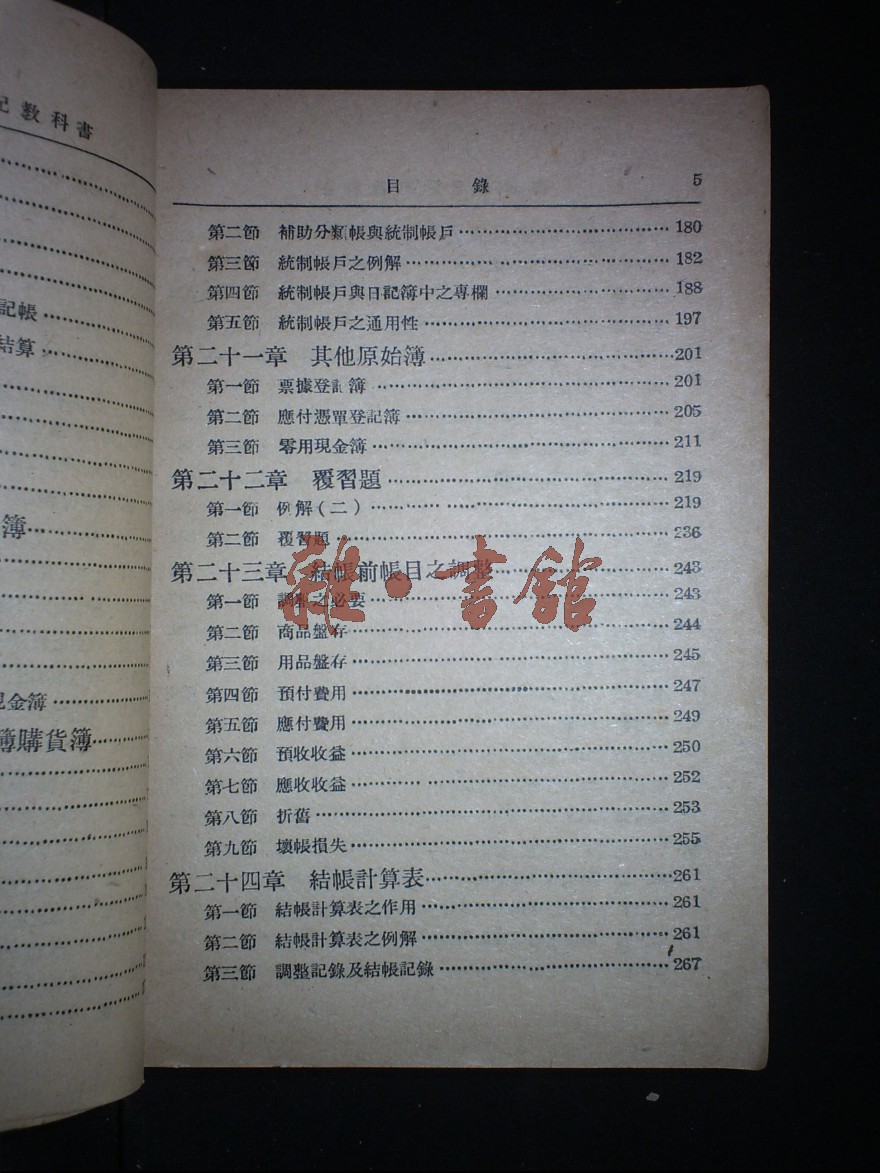 教科書
記帳
結算
簿
現金簿
簿購貨簿
目錄 5
第二節 補助分類帳與統制帳戶 180
第三節 統制帳戶之例解 182
第四節 統制帳戶與日記簿中之專欄 188
第五節 統制帳戶之通用性 197
第二十一章 其他原始簿 201
第一節 票據登記簿 201
第二節 應付憑單登記簿 205
第三節 零用現金簿 211
第二十二章 覆習題 219
第一節 例解(二) 219
第二節 覆習題 236
第二十三章 結帳前帳目之調整 243
第一節 調整之必要 243
第二節 商品盤存 244
第三節 用品盤存 245
第四節 預付費用 247
第五節 應付費用 249
第六節 預收收益 250
第七節 應收收益 252
第八節 折舊 253
第九節 壞帳損失 255
第二十四章 結帳計算表 261
第一節 結帳計算表之作用 261
第二節 結帳計算表之例解 261
第三節 調整記錄及結帳記錄 267
雜·書館